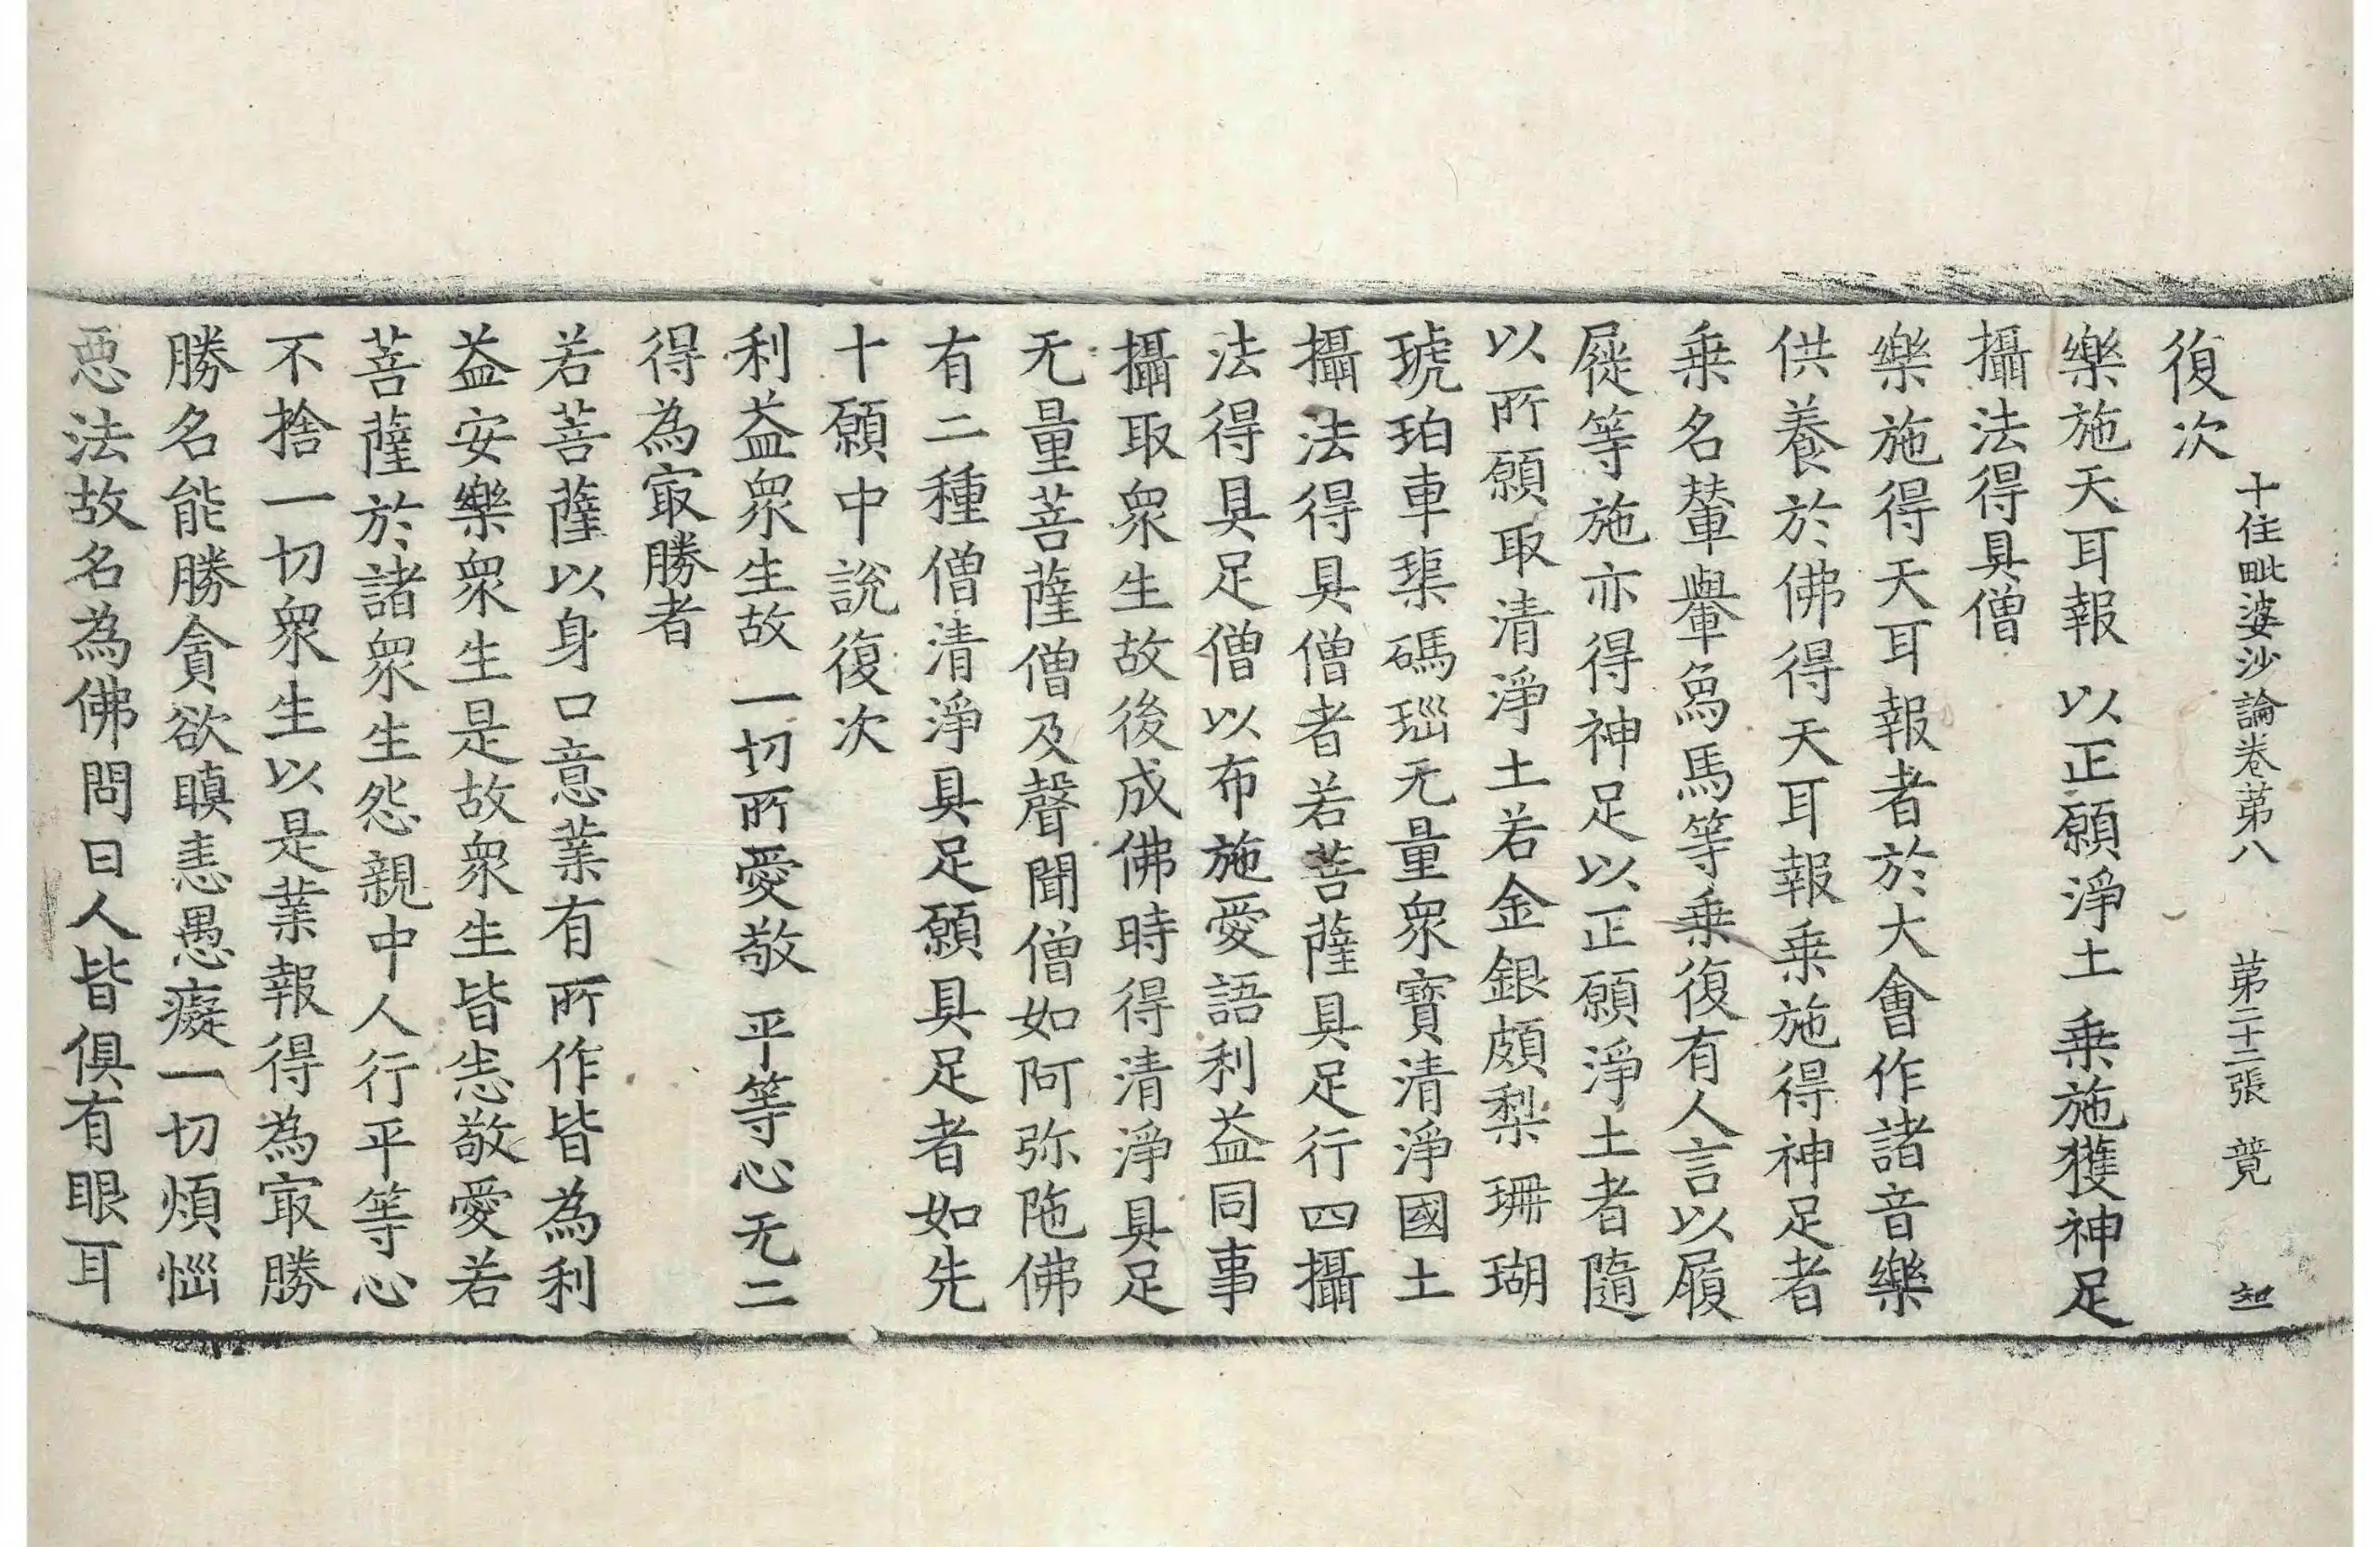 十住毗婆沙論卷苐八　苐二十二張　竟　㓝
復次
樂施天耳報　以正願淨土　乗施獲神足
攝法得具僧
樂施得天耳報者於大會作諸音樂
供養於佛得天耳報乗施得神足者
乗名輦轝鳥馬等乗復有人言以履
屣等施亦得神足以正願淨土者隨
以所願取清淨土若金銀頗梨珊瑚
琥珀車𤦲碼瑙无量衆寳清淨國土
攝法得具僧者若菩薩具足行四攝
法得具足僧以布施愛語利益同事
攝取衆生故後成佛時得清淨具足
无量菩薩僧及聲聞僧如阿弥陁佛
有二種僧清淨具足願具足者如先
十願中說復次
利益衆生故　一切所愛敬　平等心无二
得為㝡勝者
若菩薩以身口意業有所作皆為利
益安樂衆生是故衆生皆恚敬愛若
菩薩於諸衆生怨親中人行平等心
不捨一切衆生以是業報得為㝡勝
勝名能勝貪欲瞋恚愚癡一切煩惱
惡法故名為佛問曰人皆俱有眼耳